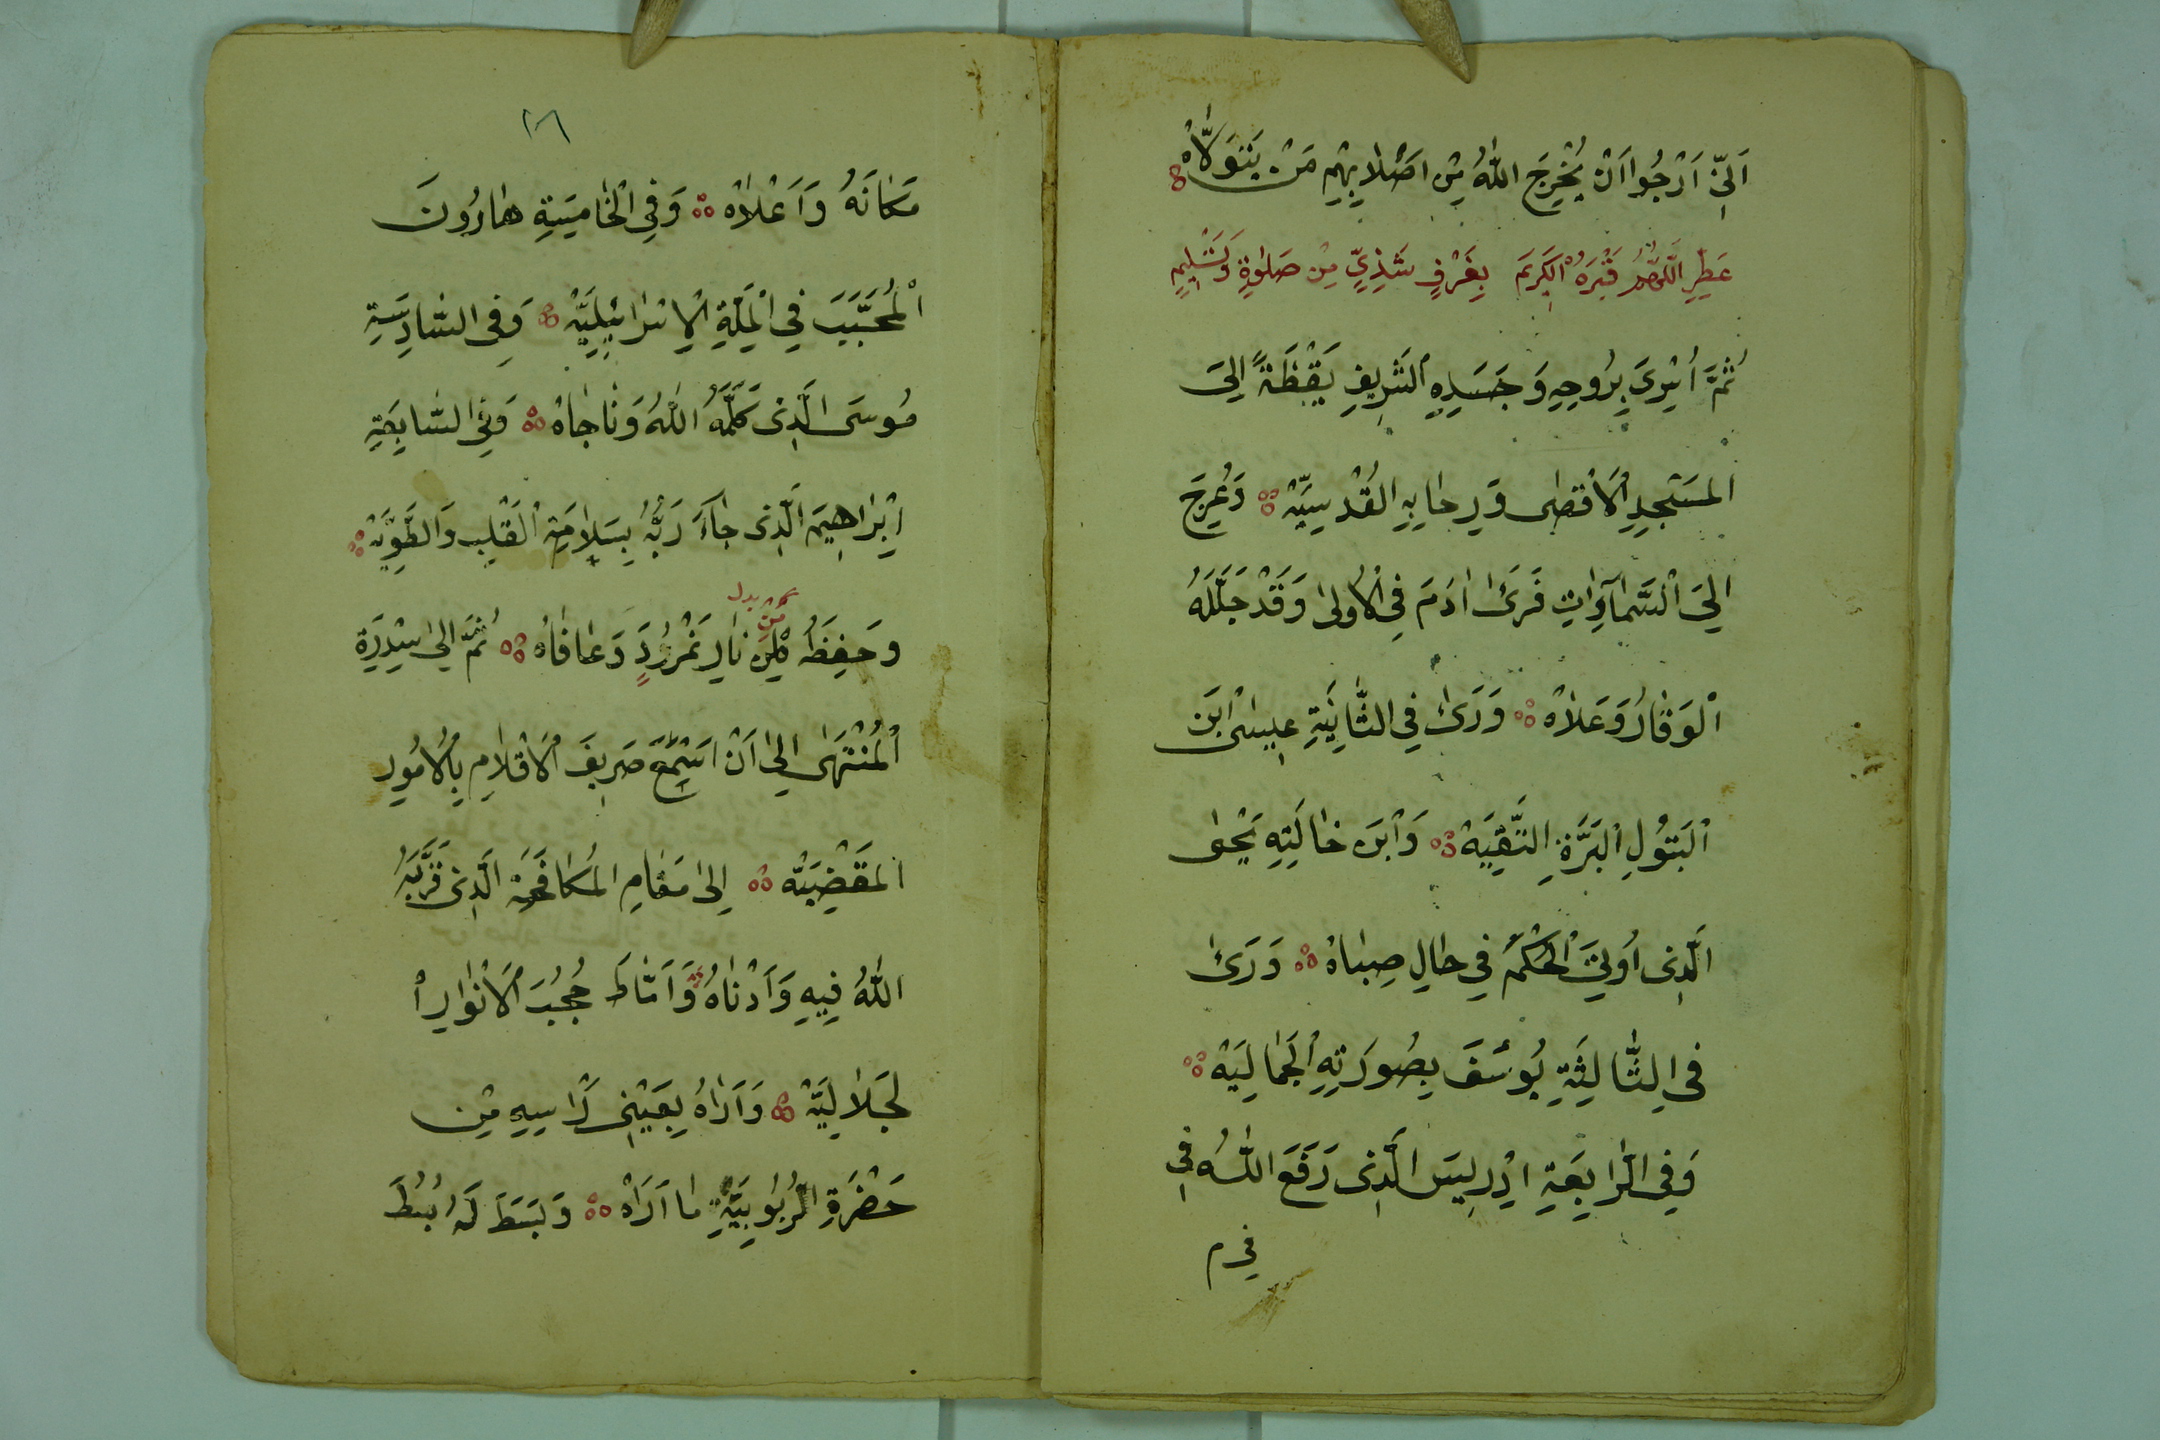 اَنِّىْ اَرْجُوا اَنْ يُخْرِجَ اللّٰهُ مِنْ اَصْلَابِهِمْ مَنْ يَتَوَلَّاهْ
عَطِّرِ اللّٰهُمَّ قَبْرَهُ الْكَرِيمَ بِعَرْفٍ شَذِيٍّ مِنْ صَلٰوةٍ وَتَسْلِيمٍ
ثُمَّ اُسْرِىَ بِرُوحِهِ وَجَسَدِهِ الشَّرِيفِ يَقْظَةً اِلَى
الْمَسْجِدِ الْاَقْصٰى وَرِحَابِهِ الْقُدْسِيَّهْ وَعُرِجَ
اِلَى السَّمٰوَاتِ فَرَىٰ اٰدَمَ فِى الْاُولٰى وَقَدْ جَلَّلَهُ
الْوَقَارُ وَعَلَاهْ وَرَىٰ فِى الثَّانِيَةِ عِيسٰى ابْنَ
الْبَتُولِ الْبَرَّةِ النَّقِيَّهْ وَابْنَ خَالَتِهِ يَحْيٰى
الَّذِى اُوتِىَ الْحُكْمَ فِى حَالِ صِبَاهْ وَرَىٰ
فِى الثَّالِثَةِ يُوسُفَ بِصُورَتِهِ الْجَمَالِيَهْ
وَفِى الرَّابِعَةِ اِدْرِيسَ الَّذِى رَفَعَ اللّٰهُ فِى
فى م
٢٦
مَكَانَهُ وَاَعْلَاهْ وَفِى الْخَامِسَةِ هَارُونَ
الْمُحَبَّبَ فِى الْمِلَّةِ الْاِسْرَائِيلِيَّهْ وَفِى السَّادِسَةِ
مُوسَى الَّذِى كَلَّمَهُ اللّٰهُ وَنَاجَاهْ وَفِى السَّابِعَةِ
اِبْرَاهِيمَ الَّذِى جَاءَ رَبَّهُ بِسَلَامَةِ الْقَلْبِ وَالطَّوِيَّهْ
بدل
مِنْ
وَحَفِظَهُ مِنْ نَارِ نَمْرُودٍ وَعَافَاهْ ثُمَّ اِلٰى سِدْرَةِ
الْمُنْتَهٰى اِلٰى اَنْ اسْتَمَعَ صَرِيفَ الْاَقْلَامِ بِالْاُمُورِ
الْمَقْضِيَّهْ اِلٰى مَقَامِ الْمُكَافَحَةِ الَّذِى قَرَّبَهُ
اللّٰهُ فِيهِ وَاَدْنَاهُ وَاَمَاطَ حُجُبَ الْاَنْوَارِ ا
لْجَلَالِيَّهْ وَاَرَاهُ بِعَيْنَىْ رَاْسِهِ مِنْ
حَضْرَةِ الرُّبُوبِيَّةِ مَا اَرَاهْ وَبَسَطَ لَهُ بُسُطَ